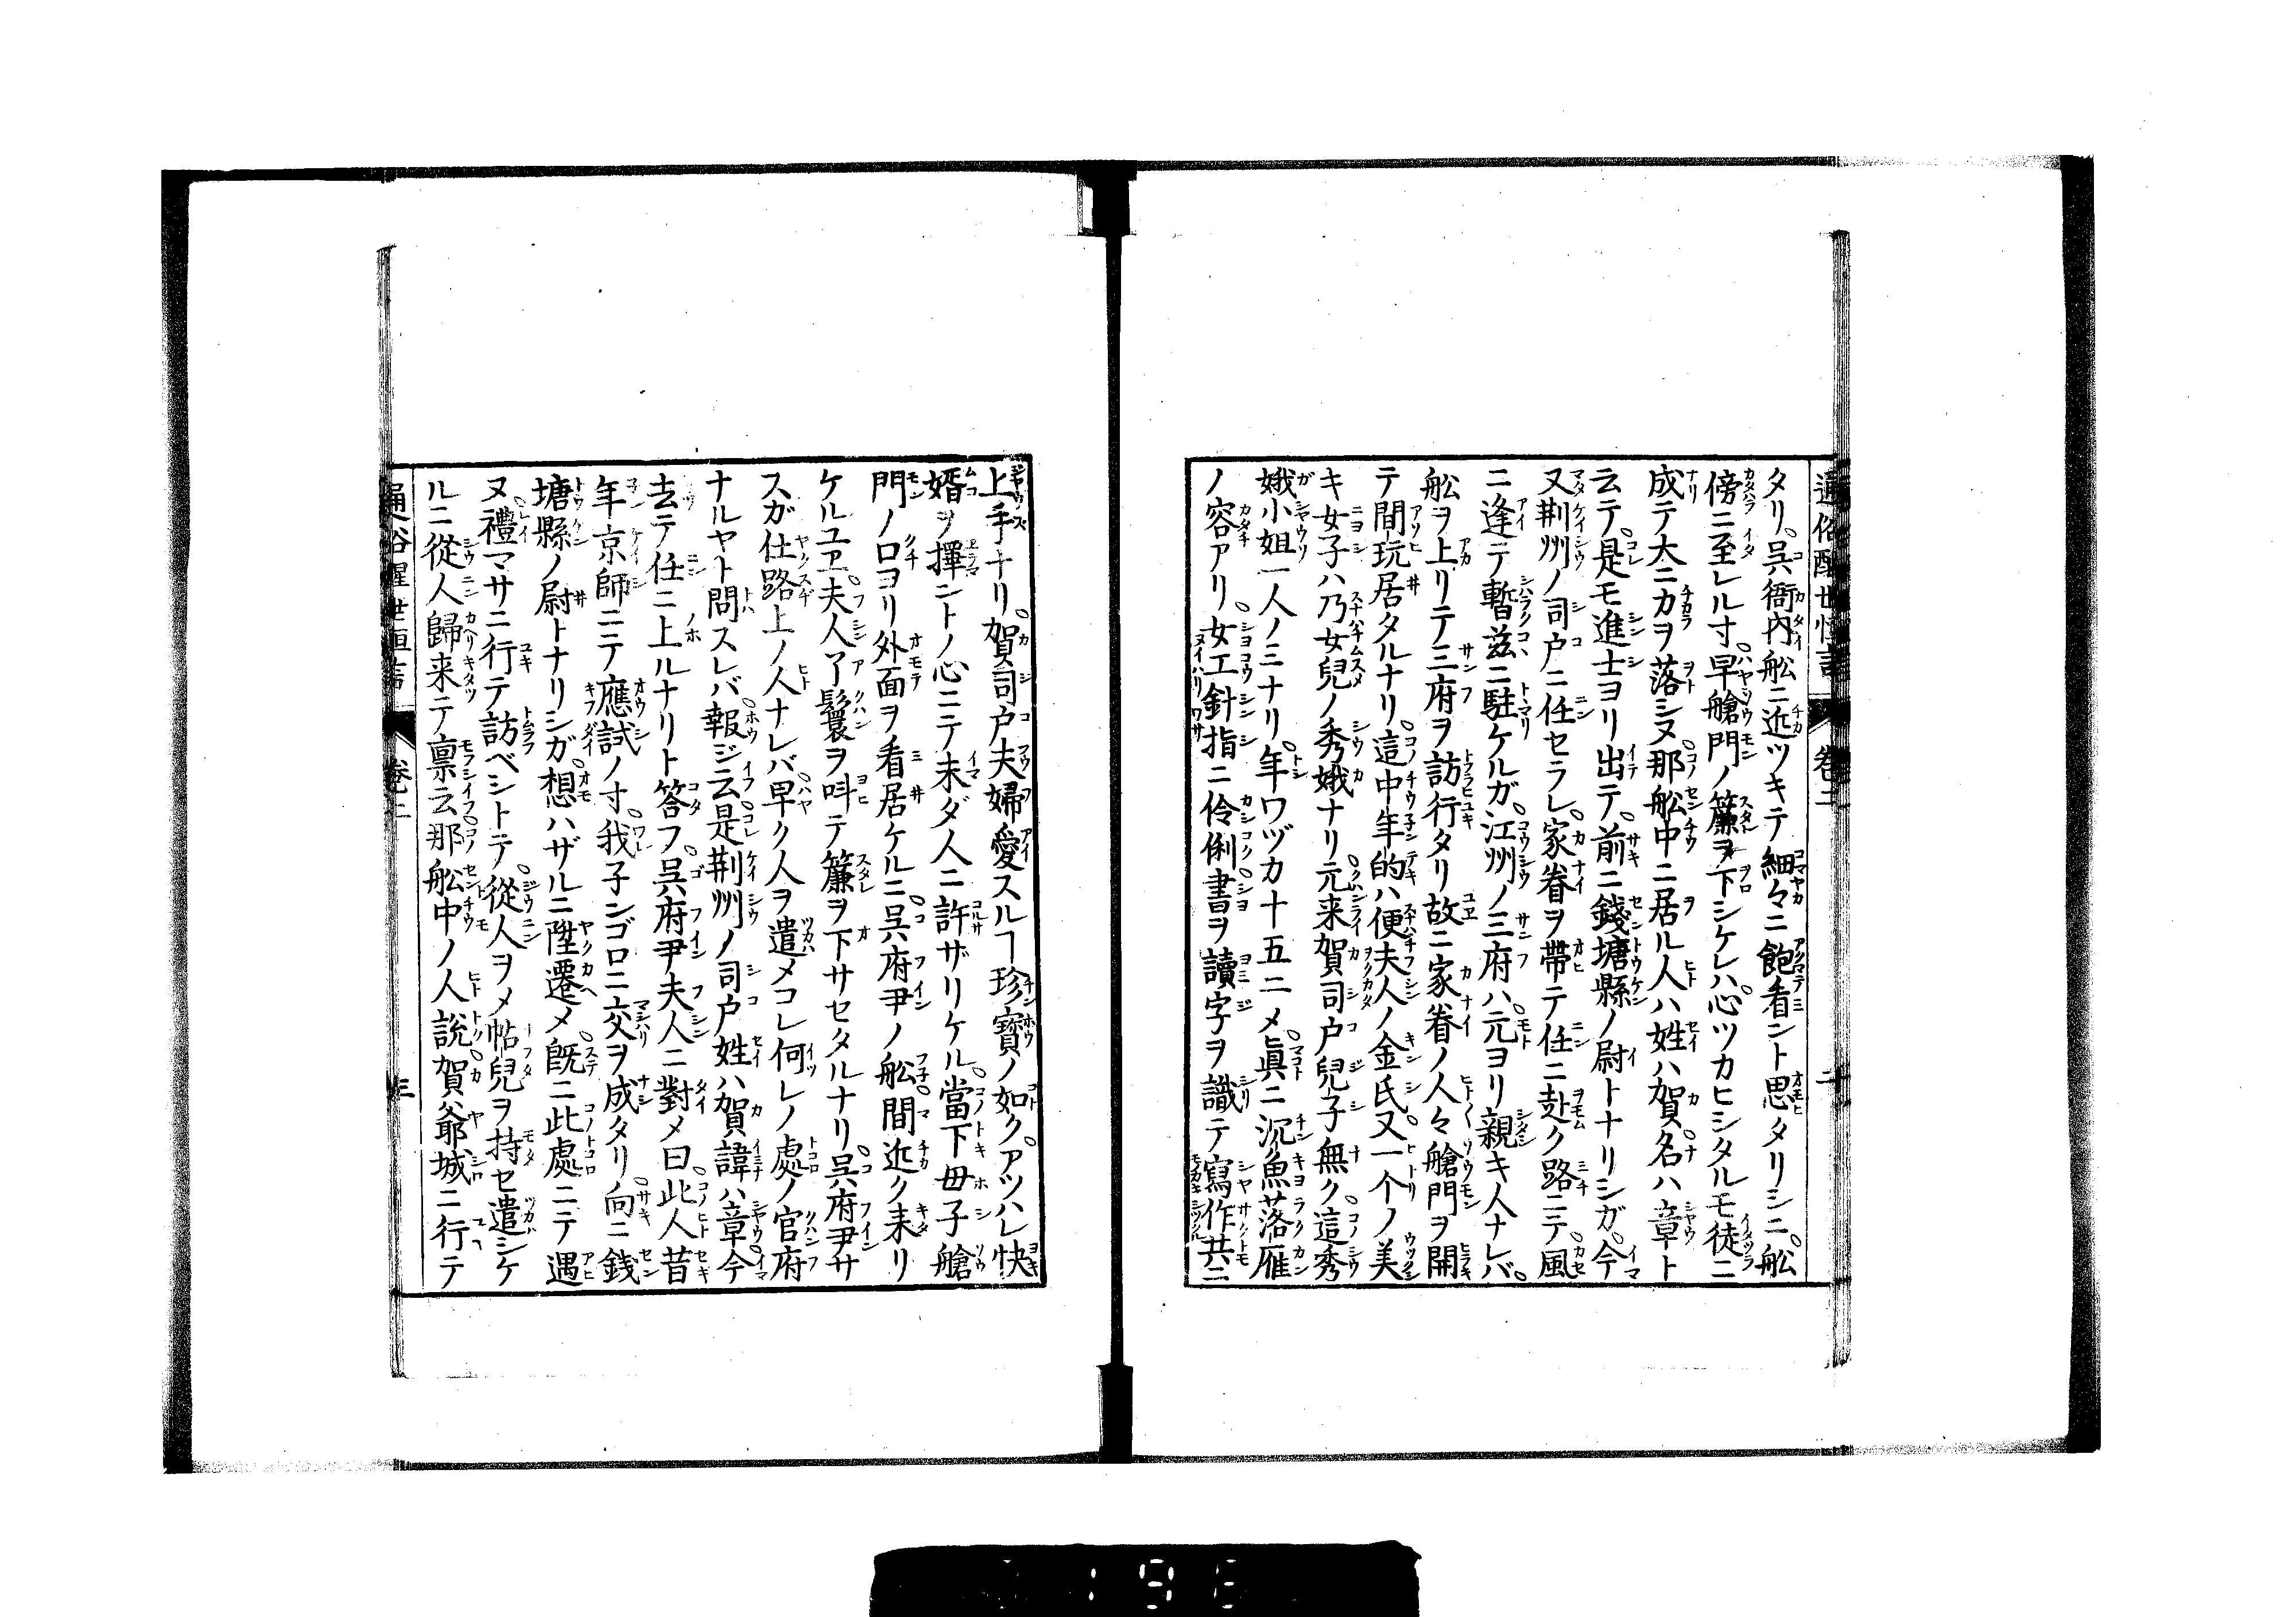 通俗醒世恒言 卷二 二
タリ。呉衙内舩ニ近ツキテ細々ニ飽看ント思タリシニ。舩
傍ニ至レル寸。早艙門ノ簾ヲ下シケレハ。心ツカヒシタルモ徒ニ
成テ大ニカヲ落シヌ。那舩中ニ居ル人ハ姓ハ賀名ハ章ト
云テ。是モ進士ヨリ出テ。前ニ錢塘縣ノ尉トナリシガ。今
又荆州ノ司户ニ任セラレ。家眷ヲ帶テ任ニ赴ク路ニテ風
ニ逢テ暫玆ニ駐ケルガ。江州ノ三府ハ。元ヨリ親キ人ナレバ。
舩ヲ上リテ三府ヲ訪行タリ故ニ家眷ノ人々艙門ヲ開
テ間玩居タルナリ。這中年的ハ便夫人ノ金氏。又一个ノ美
キ女子ハ乃女兒ノ秀娥ナリ元来賀司户兒子無ク。這秀
娥小姐一人ノミナリ。年ワヅカ十五ニメ。眞ニ沉魚落雁
ノ容アリ。女工針指ニ伶俐。書ヲ讀字ヲ識テ寫作共ニ
上手ナリ。賀司户夫婦愛スルヿ珍寶ノ如ク。アツハレ快
婿ヲ擇ントノ心ニテ未ダ人ニ許ザリケル。當下母子艙
門ノ口ヨリ外面ヲ看居ケルニ。呉府尹ノ舩間近ク来リ
ケルユヱ。夫人丫鬟ヲ呌テ簾ヲ下サセタルナリ。呉府尹サ
スガ仕路上ノ人ナレバ。早ク人ヲ遣メコレ何レノ處ノ官府
ナルヤト問スレバ。報ジ云。是荆州ノ司户姓ハ賀諱ハ章。今
去テ任ニ上ルナリト答フ。呉府尹夫人ニ對メ曰。此人昔
年京師ニテ應試ノ寸。我子ンゴロニ交ヲ成タリ。向ニ錢
塘縣ノ尉トナリシガ。想ハザルニ陞遷メ。既ニ此處ニテ遇
ヌ。禮マサニ行テ訪ベシトテ。從人ヲメ帖兒ヲ持セ遣シケ
ルニ從人歸来テ稟云。那舩中ノ人説。賀爺城ニ行テ
通俗醒世恒言 卷二 三